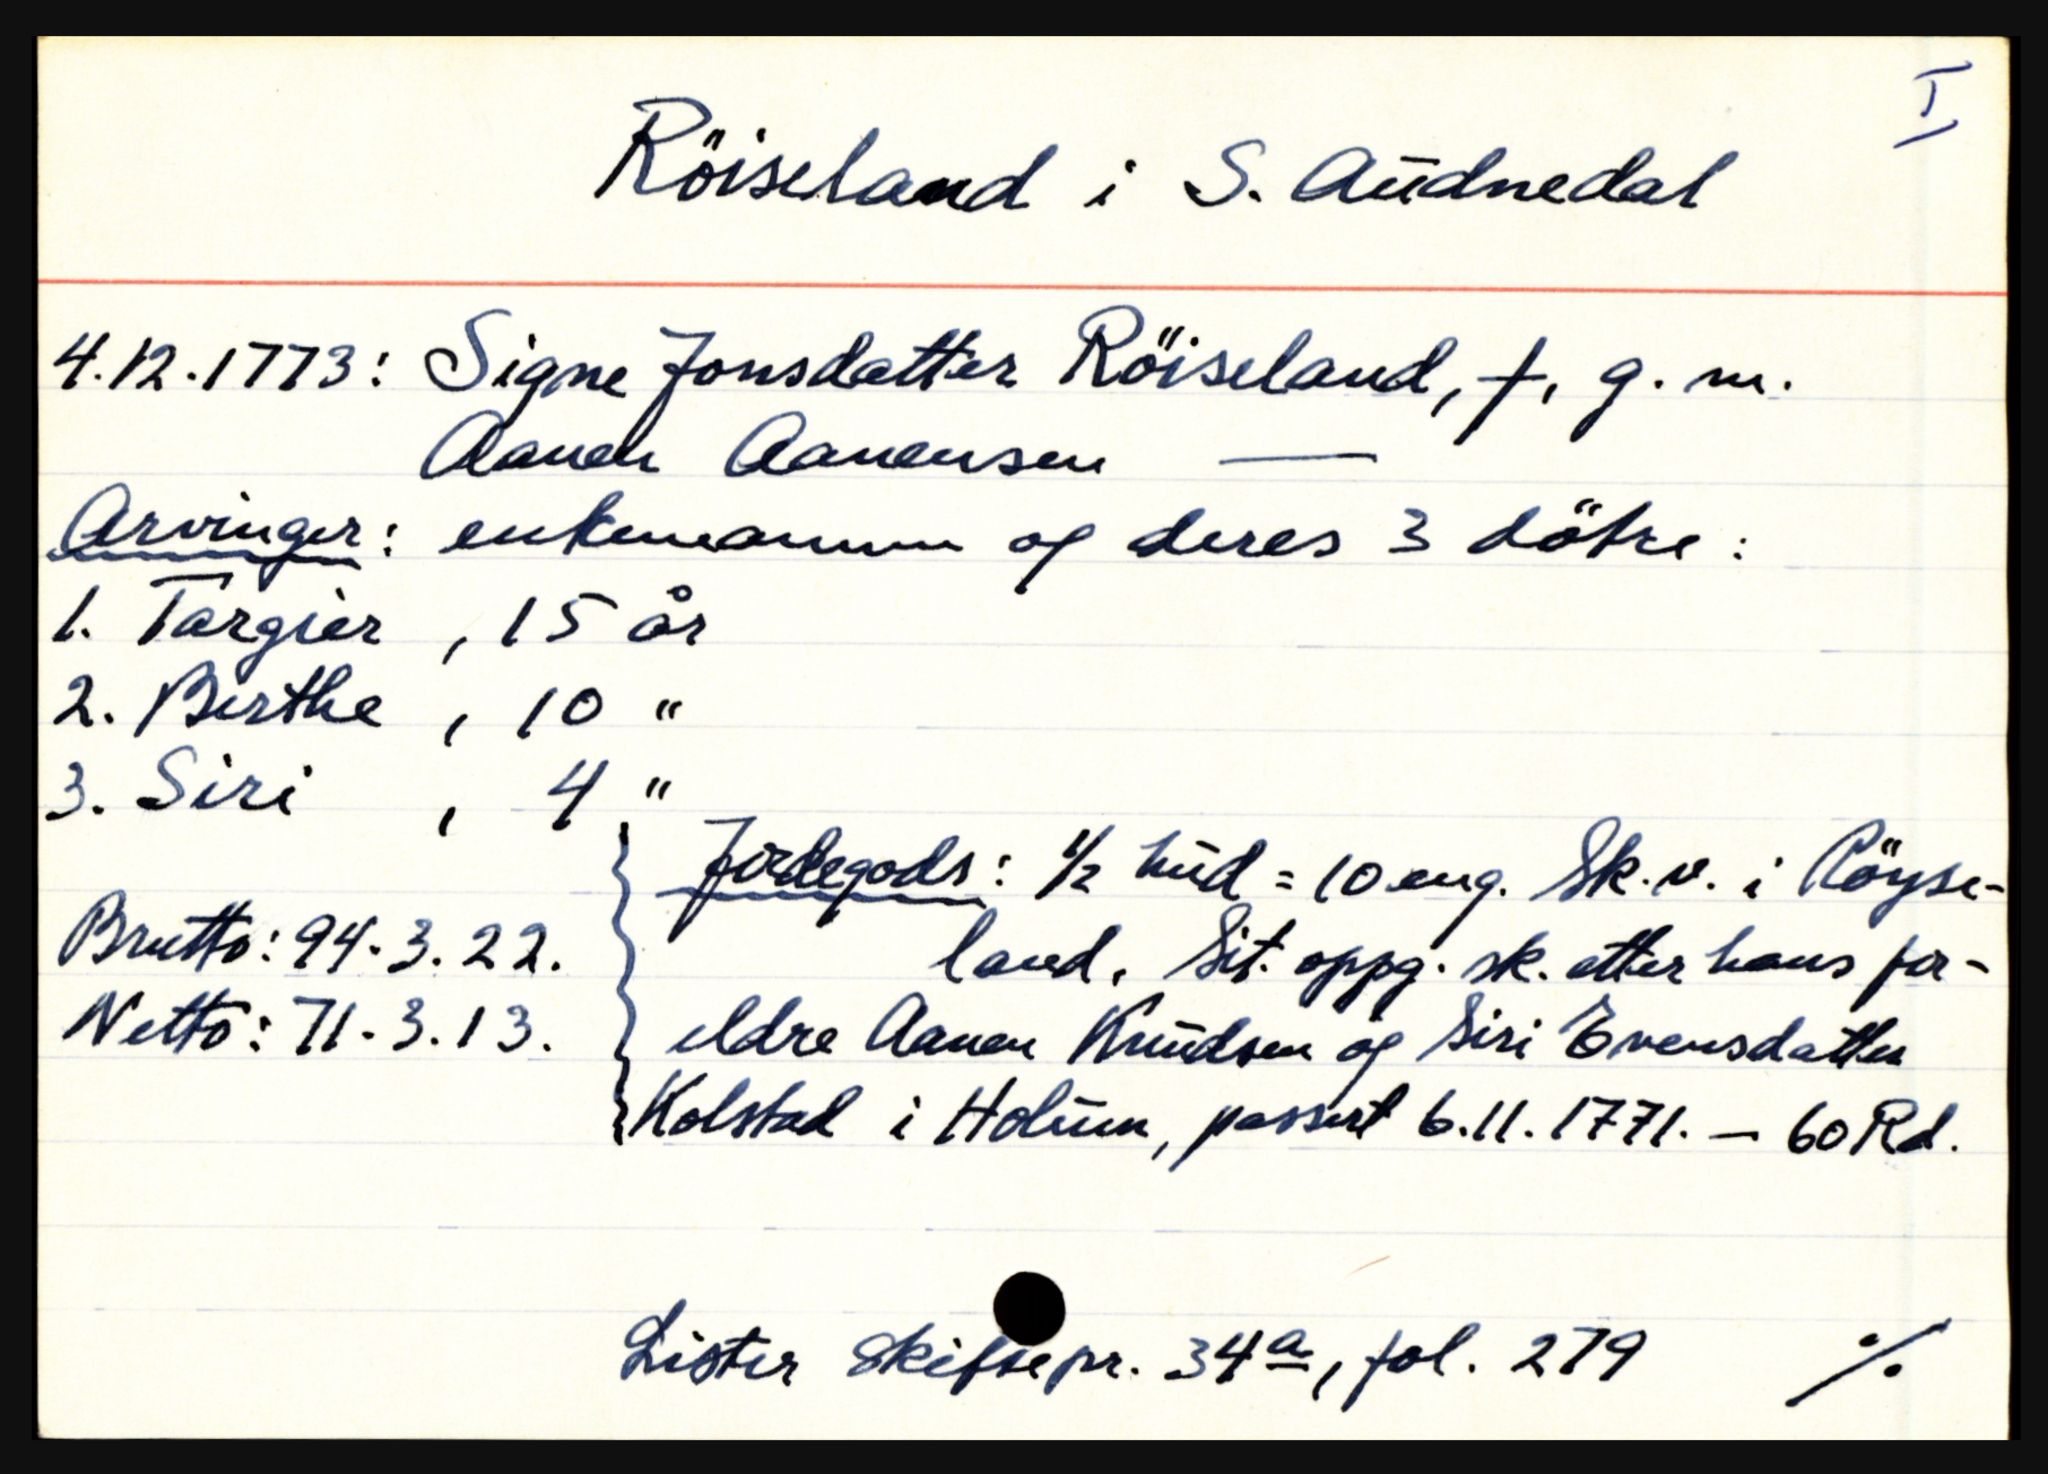 I
Röiseland i S. Audnedal
4.12.1773: Signe Jonsdatter Röiseland, †, g. m.
Aanen Aanensen —
Arvinger: enkemannen og deres 3 dötre:
1. Targier, 15 år
2. Berthe, 10 "
3. Siri, 4 "
Jordegods: 1/2 hud = 10 eng. Sk. v. i Röyse-
land. Sit. oppg. sk. etter hans for-
eldre Aanen Knudsen og Siri Evensdatter
Kolstad i Holum, passert 6.11.1771. — 60 Rd.
Brutto: 94.3.22.
Netto: 71.3.13.
Lister skiftepr. 34a, fol. 279 ./.